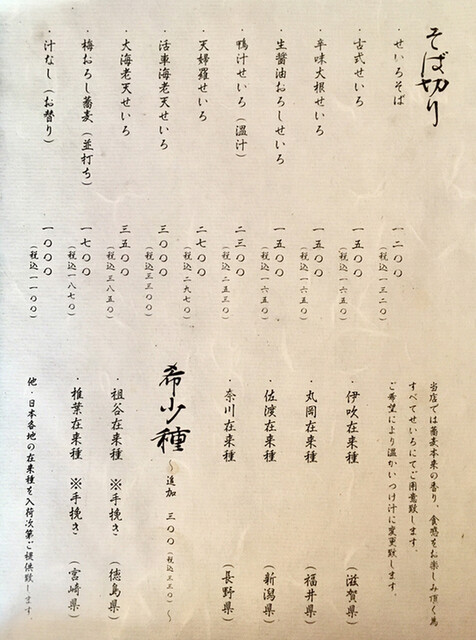 そば切り
・せいろそば 一二〇〇
（税込一三二〇）
・古式せいろ 一五〇〇
（税込一六五〇）
・辛味大根せいろ 一五〇〇
（税込一六五〇）
・生醤油おろしせいろ 一五〇〇
（税込一六五〇）
・鴨汁せいろ（温汁） 二三〇〇
（税込二五三〇）
・天婦羅せいろ 二七〇〇
（税込二九七〇）
・活車海老天せいろ 三〇〇〇
（税込三三〇〇）
・大海老天せいろ 三五〇〇
（税込三八五〇）
・梅おろし蕎麦（並打ち） 一七〇〇
（税込一八七〇）
・汁なし（お替り） 一〇〇〇
（税込一一〇〇）
当店では蕎麦本来の香り、食感をお楽しみ頂く為
すべてせいろにてご用意致します。
ご希望により温かいつけ汁に変更致します。
・伊吹在来種 （滋賀県）
・丸岡在来種 （福井県）
・佐渡在来種 （新潟県）
・奈川在来種 （長野県）
希少種 〜追加 三〇〇（税込三三〇）〜
・祖谷在来種 ※手挽き （徳島県）
・椎葉在来種 ※手挽き （宮崎県）
他・日本各地の在来種を入荷次第ご提供致します。